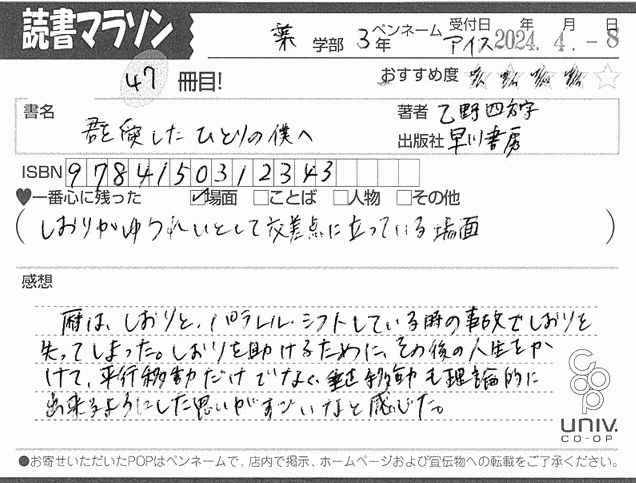 読書マラソン
薬 学部 3年 ペンネーム アイス 受付日 2024. 4. -8 年 月 日
47 冊目! おすすめ度 ★★★★☆
書名 君を愛したひとりの僕へ
著者 乙野四方字
出版社 早川書房
ISBN 9784150312343
♥一番心に残った ☑場面 □ことば □人物 □その他
(しおりがゆうれいとして交差点に立っている場面)
感想
暦は、しおりと、パラレル・シフトしている時の事故でしおりを
失ってしまった。しおりを助けるために、その後の人生をか
けて、平行移動だけでなく、垂直移動も理論的に
出来るようにした思いがすごいなと感じた。
coop
UNIV.
CO-OP
●お寄せいただいたPOPはペンネームで、店内で掲示、ホームページおよび宣伝物への転載をご了承ください。